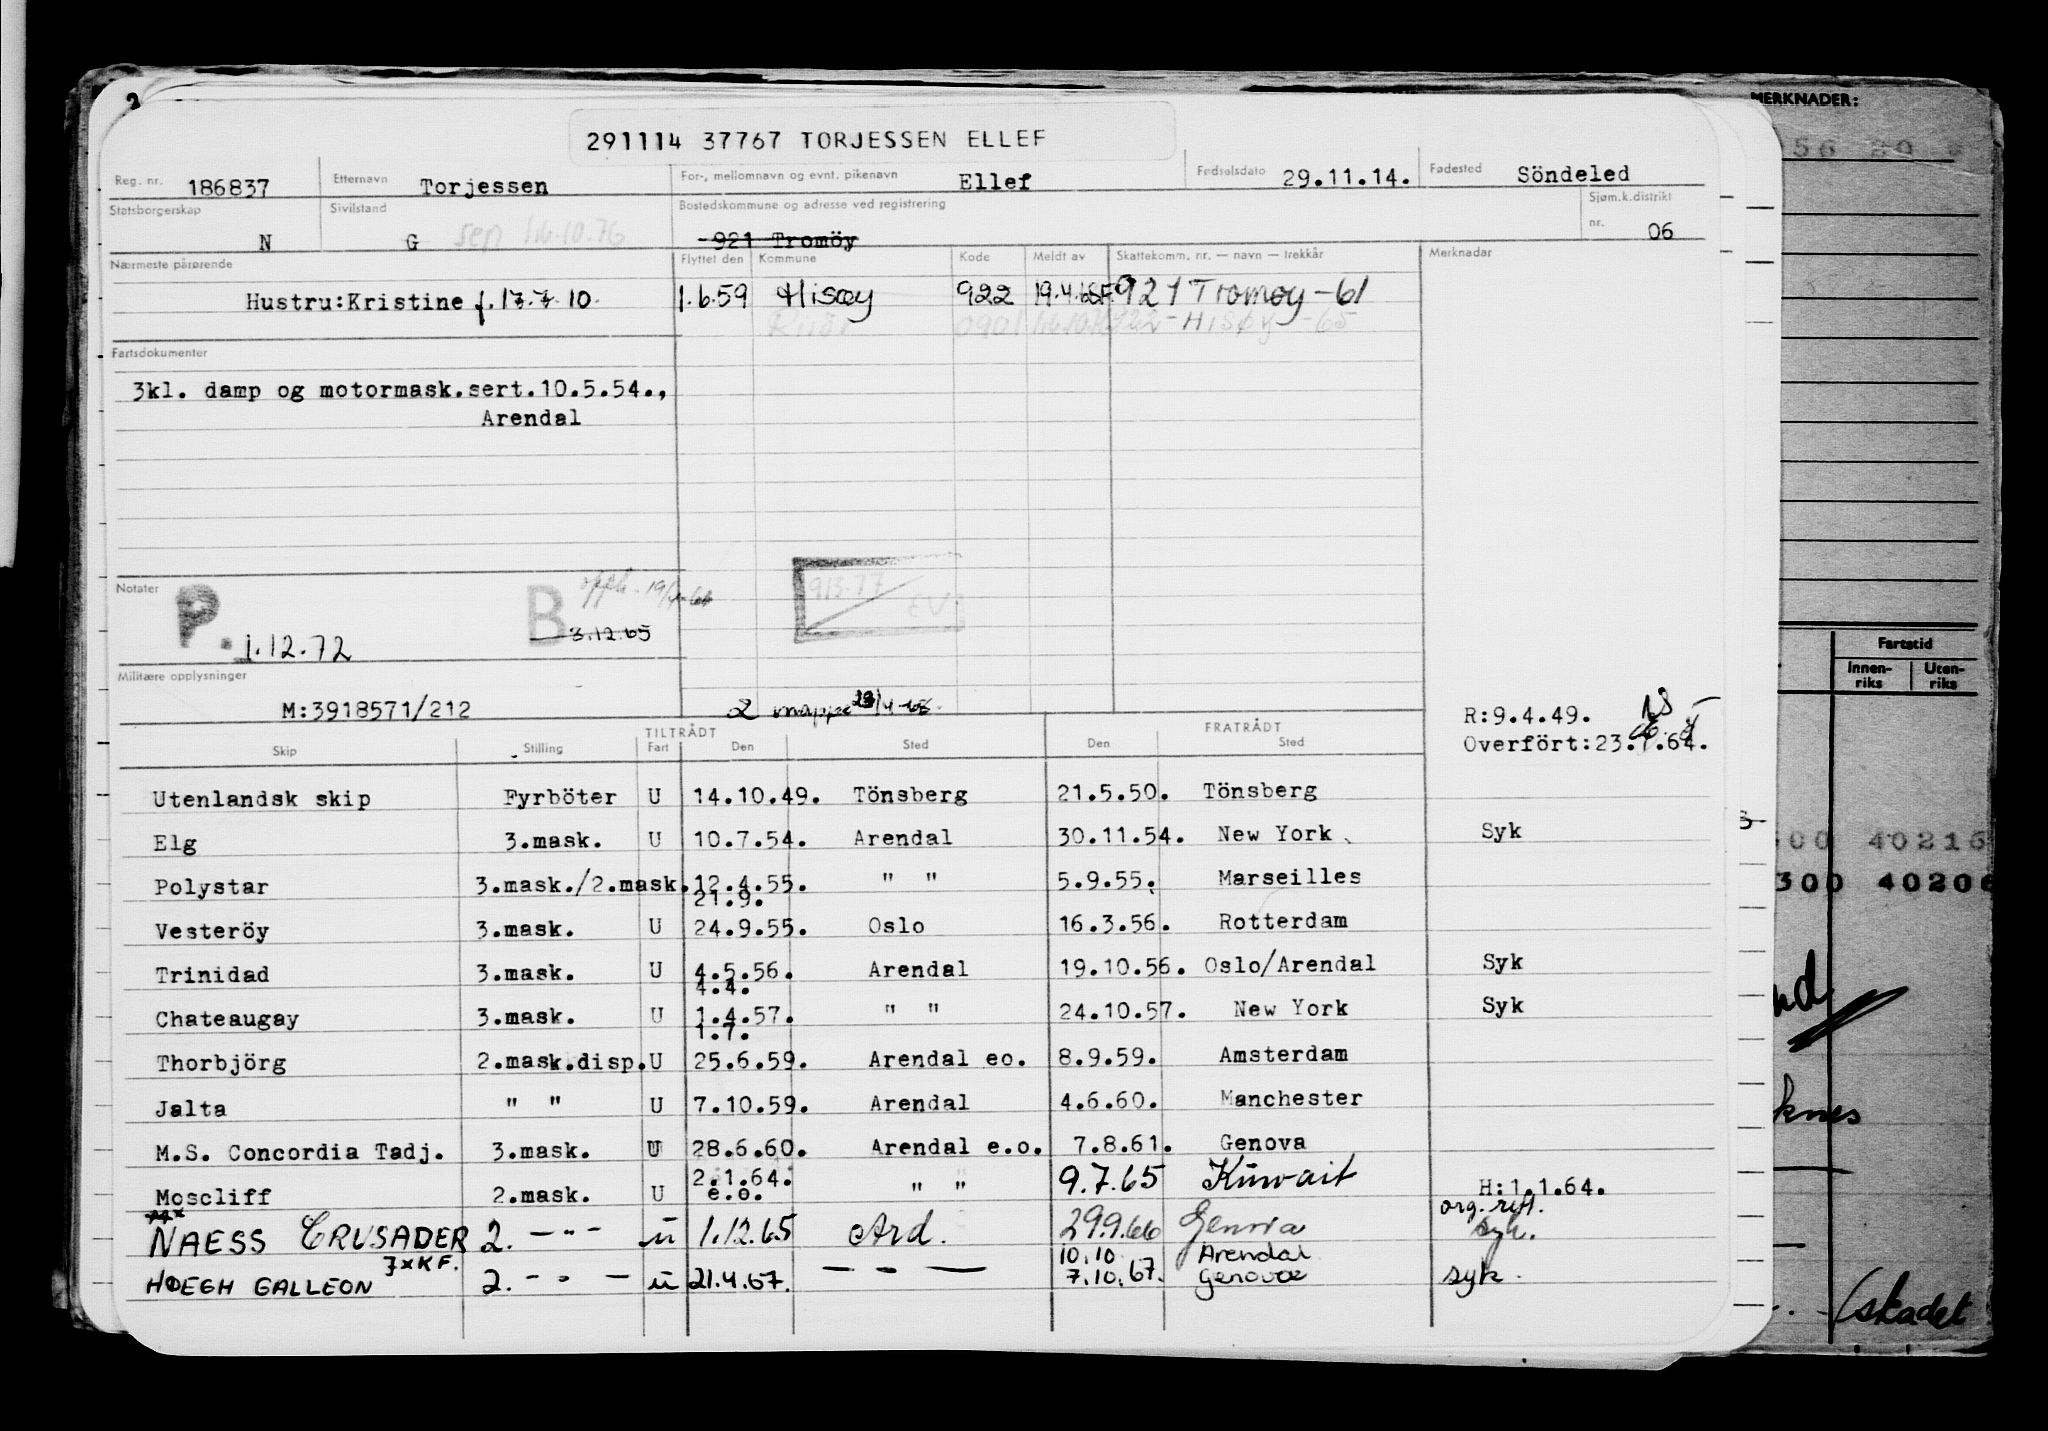 2
MERKNADER:
291114 37767 TORJESSEN ELLEF
Reg. nr. 186837 Etternavn Torjessen For-, mellomnavn og evnt. pikenavn Ellef Fødselsdato 29.11.14. Fødested Söndeled
Statsborgerskap N Sivilstand G sep 1.6.10.76 Bostedskommune og adresse ved registrering -921 Tromöy Sjøm.k.distrikt nr. 06
Nærmeste pårørende Flyttet den Kommune Kode Meldt av Skattekomm, nr. — navn — trekkår Merknader
Hustru:Kristine f. 17.7.10. 1.6.59 Hisøy 922 19.4.65F 921 Tromøy-61
Risør 0901 922-HISØY-65
Fartsdokumenter
3kl. damp og motormask.sert.10.5.54.,
Arendal
Notater P. 1.12.72 B opph. 3.12.65 9/3-77
Militære opplysninger
M:3918571/212 2 mappe
R:9.4.49.
Overfört:23. .64.
TILTRÅDT FRATRÅDT
Skip Stilling Fart Den Sted Den Sted
Utenlandsk skip Fyrböter U 14.10.49. Tönsberg 21.5.50. Tönsberg
Elg 3.mask. U 10.7.54. Arendal 30.11.54. New York Syk
Polystar 3.mask./2.mask. 12.4.55. " " 5.9.55. Marseilles
21.9.
Vesteröy 3.mask. U 24.9.55. Oslo 16.3.56. Rotterdam
Trinidad 3.mask. U 4.5.56. Arendal 19.10.56. Oslo/Arendal Syk
4.4.
Chateaugay 3.mask. U 1.4.57. " " 24.10.57. New York Syk
1.7.
Thorbjörg 2.mask.disp. U 25.6.59. Arendal eo. 8.9.59. Amsterdam
Jalta " " U 7.10.59. Arendal 4.6.60. Manchester
M.S. Concordia Tadj. 3.mask. U 28.6.60. Arendal e.o. 7.8.61. Genova
2.1.64.
Moscliff 2.mask. U e.o. " " 9.7.65 Kuwait H:1.1.64.
org. rift.
NAESS CRUSADER 2. — " — u 1.12.65 Ard. 29.9.66 Genova syk.
7xKF. 10.10 Arendal
HØEGH GALLEON 2. - " - u 21.4.67. — " — 7.10.67. Genova syk.
Fartstid
Innen-riks Uten-riks
00 40216
300 4020
nd
knes
(skadet